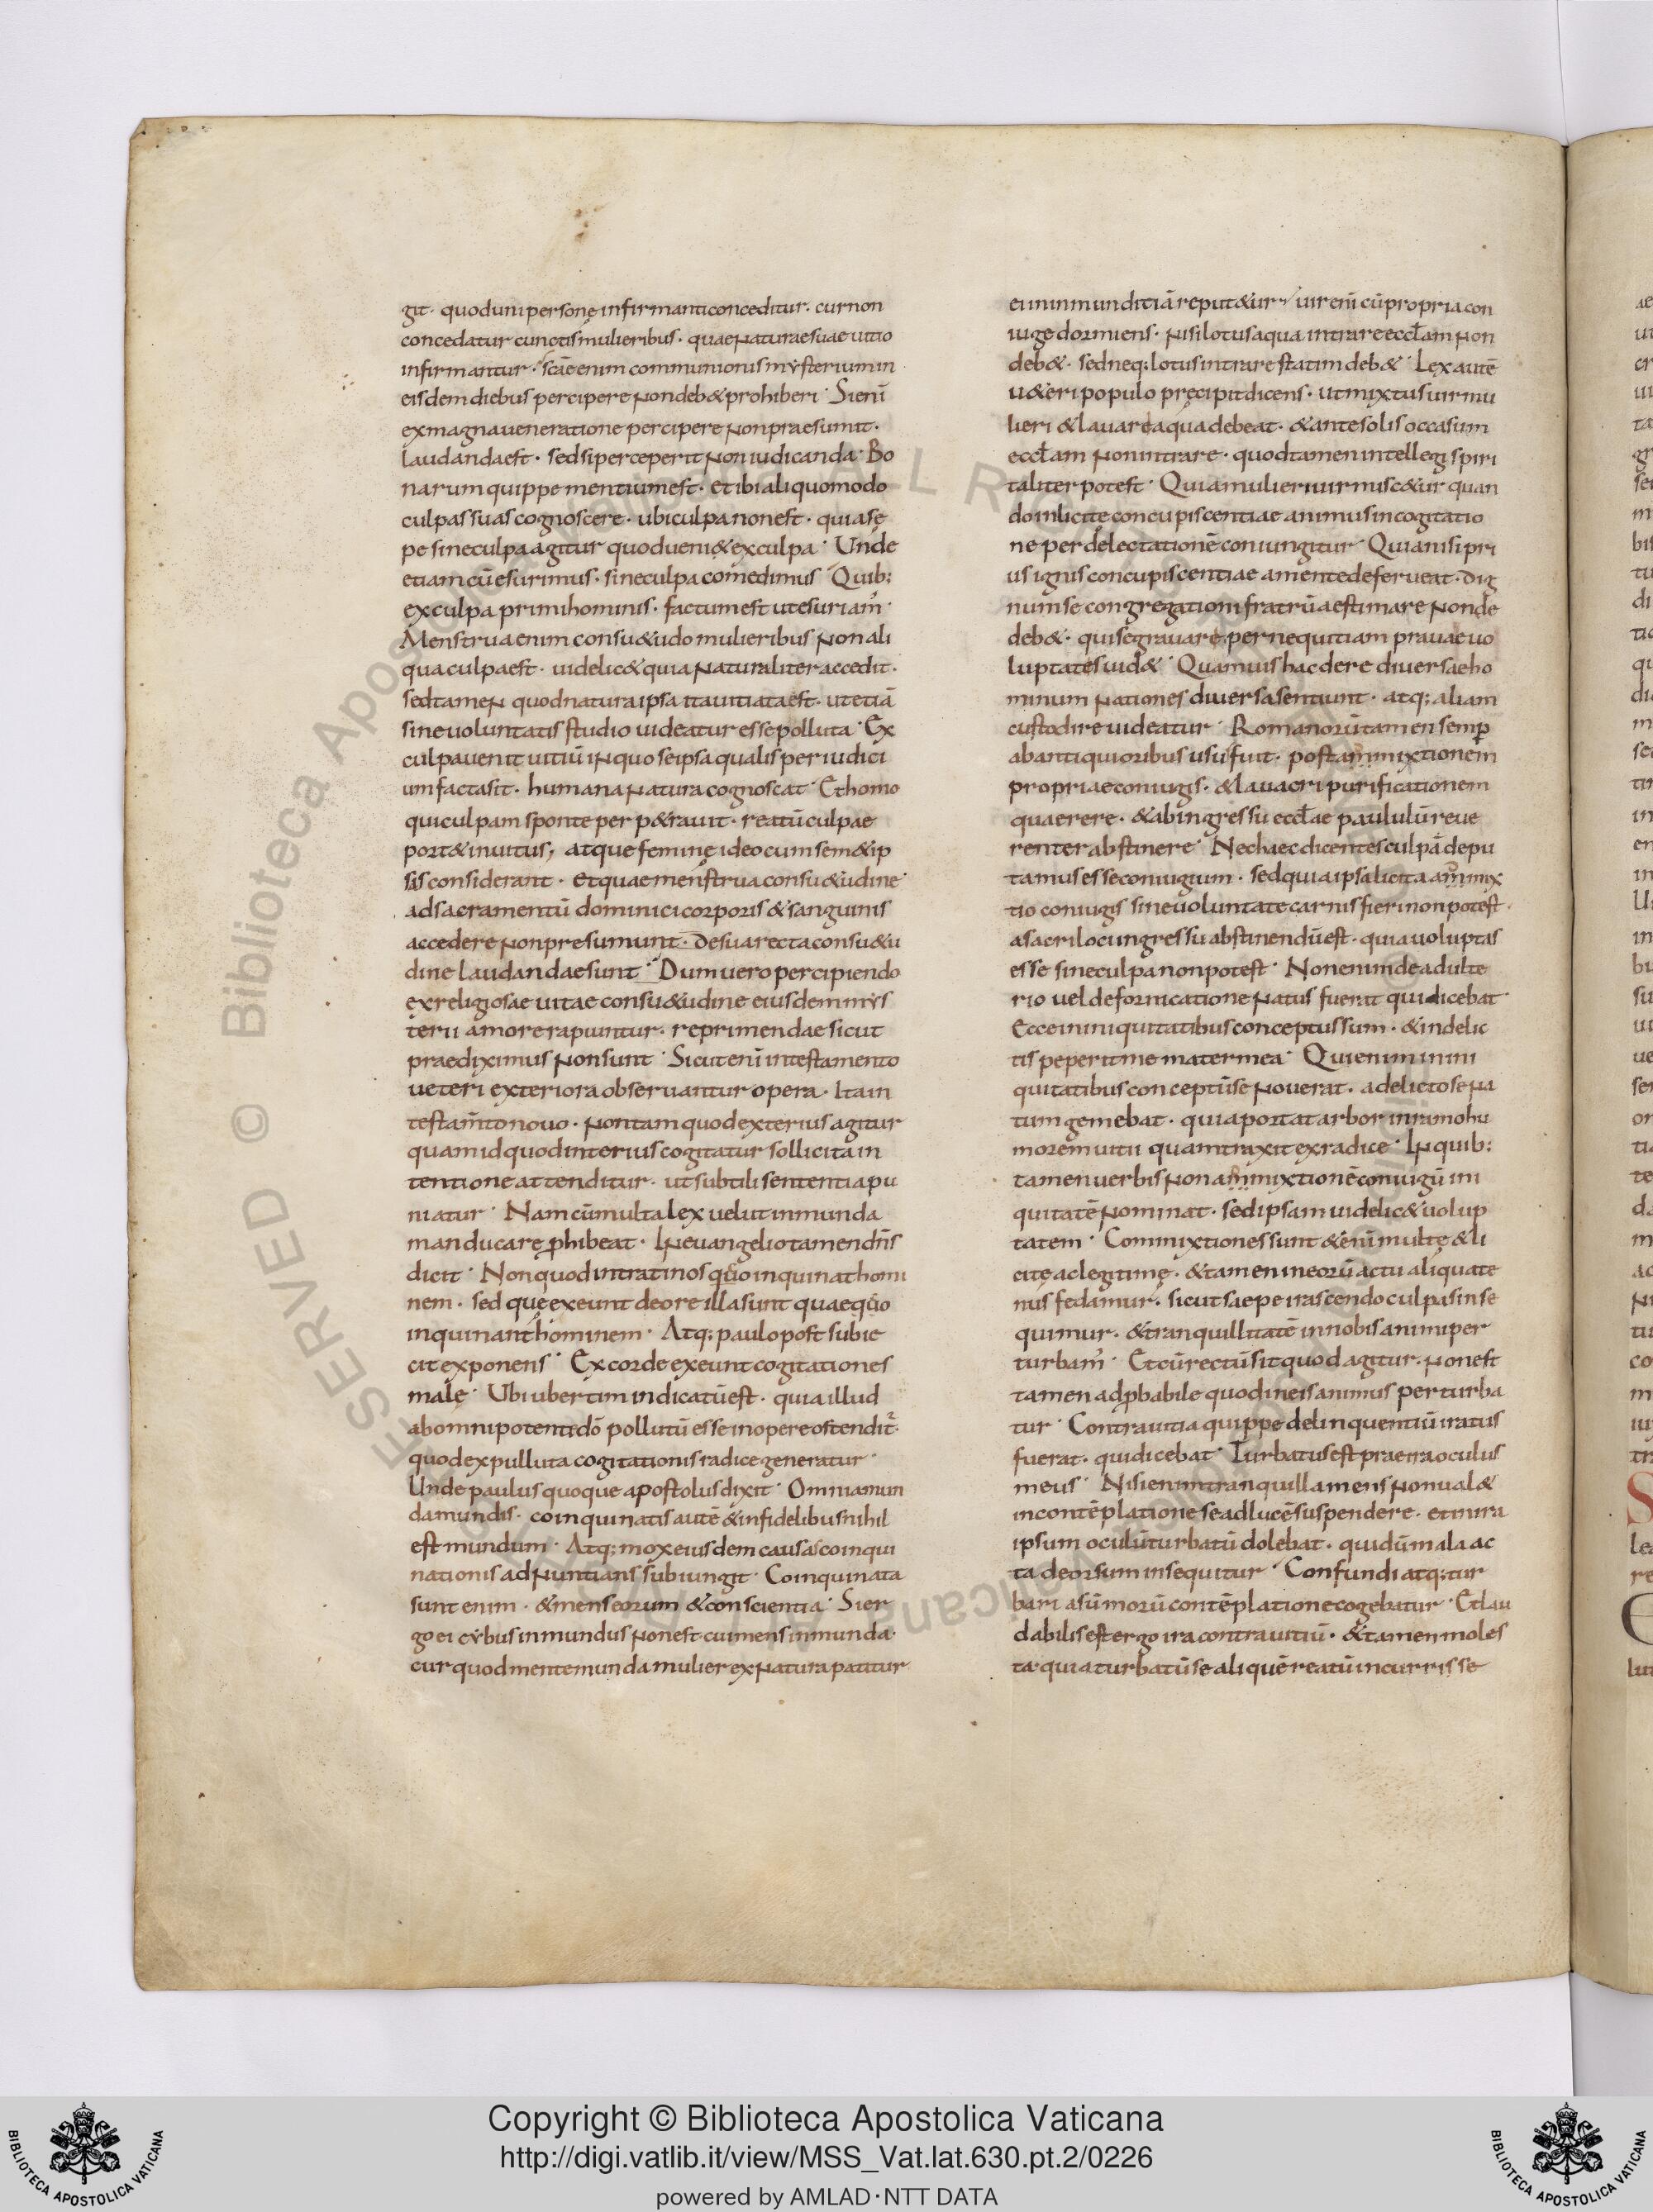 git· quod uni personę infirmanti conceditur· cur non
concedatur cunctis mulieribus· quae naturae suae uitio
infirmantur· scāe enim communionis mysterium in
eisdem diebus percipere non deb& prohiberi· Si enī
ex magna ueneratione percipere non praesumit·
laudanda est· sed si perceperit non iudicanda· Bo
narum quippe mentium est· et ibi aliquomodo
culpas suas cognoscere· ubi culpa non est· quia sę
pe sine culpa agitur quod ueni& ex culpa· Unde
etiam cū esurimus· sine culpa comedimus Quib;
ex culpa primi hominis· factum est ut esuriam̄·
Menstrua enim consu&udo mulieribus non ali
qua culpa est· uidelic& quia naturaliter accedit·
sed tamen quod natura ipsa ita uitiata est· ut etiā
sine uoluntatis studio uideatur esse polluta· Ex
culpa uenit uitiū in quo se ipsa qualis per iudici
um facta sit· humana natura cognoscat· Et homo
qui culpam sponte perp&rauit· reatū culpae
port& inuitus, atque feminę ideo cum sem&ip
sis considerant· et quae menstrua consu&udine·
ad sacramentū dominici corporis & sanguinis
accedere non presumunt· de sua recta consu&u
dine laudandae sunt· Dum uero percipiendo
ex religiosae uitae consu&udine eiusdem mys
terii amore rapiuntur· reprimendae sicut
praediximus non sunt· Sicut enī in testamento
ueteri exteriora obseruantur opera· Ita in
testam̄to nouo· non tam quod exterius agitur
quam id quod interius cogitatur sollicita in
tentione attenditur· ut subtili sententia pu
niatur· Nam cūmulta lex uelut inmunda
manducare p̄hibeat· In euangelio tamen dn̄s
dicit· Non quod intrat in os quo inquinat homi
nem· sed quę exeunt de ore illa sunt quae quo
inquinant hominem· Atq; paulo post subie
cit exponens· Ex corde exeunt cogitationes
malę· Ubi ubertim indicatū est· quia illud
ab omnipotente dō pollutū esse in opere ostendit̄·
quod ex pulluta cogitationis radice generatur·
Unde paulus quoque apostolus dixit· Omnia mun
da mundis· coinquinatis autē & infidelibus nihil
est mundum· Atq; mox eiusdem causas coinqui
nationis adnuntians subiungit· Coinquinata
sunt enim· & mens eorum & conscientia· Si er
go ei cybus inmundus non est cui mens inmunda·
cur quod mente munda mulier ex natura patitur
ei in inmunditiā reput&ur· uir enī cū propria con
iuge dormiens· nisi lotus aqua intrare eccl̄am non
deb&· sed neq; lotus intrare statim deb&· Lex autē
u&eri populo pręcipit dicens· ut mixtus uir mu
lieri & lauare aqua debeat· & ante solis occasum
eccl̄am non intrare· quod tamen intellegi spiri
taliter potest· Quia mulieri uir misc&ur quan
do inlicitę concupiscentiae animus in cogitatio
ne per delectationē coniungitur· Quia nisi pri
us ignis concupiscentiae a mente deferueat· dig
num se congregationi fratrū aestimare non de
deb&· qui se grauare per nequitiam prauae uo
luptates uid&· Quamuis hac de re diuersae ho
minum nationes diuersa sentiunt· atq; aliam
custodire uideatur· Romanorū tamen semp̄
ab antiquioribus usū fuit· post ammixtionem
propriae coniugis· & lauacri purificationem
quaerere· & ab ingressu eccl̄ae paululū reue
renter abstinere· Nec haec dicentes culpā depu
tamus esse coniugium· sed quia ipsa licita ammix
tio coniugis sine uoluntate carnis fieri non potest·
a sacri loci ingressu abstinendū est· quia uoluptas
esse sine culpa non potest· Non enim de adulte
rio uel de fornicatione natus fuerat qui dicebat·
Ecce in iniquitatibus conceptus sum· & in delic
tis peperit me mater mea· Qui enim in ini
quitatibus conceptū se nouerat· a delicto se na
tum gemebat· quia portat arbor in ramo hu
morem uitii quam traxit ex radice· In quib;
tamen uerbis non ammixtionē coniugū ini
quitatē nominat· sed ipsam uidelic& uolup
tatem· Commixtiones sunt &enī multę & li
citę ac legitimę· & tamen in eorū actu aliquate
nus fedamur· sicut saepe irascendo culpas inse
quimur· & tranquillitatē in nobis animi per
turbam̄· Et cū rectū sit quod agitur· non est
tamen adp̄babile quod in eis animus perturba
tur· Contra uitia quippe delinquentiū iratus
fuerat· qui dicebat· Turbatus est prae ira oculus
meus· Nisi enim tranquilla mens non ual&
in contēplatione se ad lucē suspendere· et in ira
ipsum oculū turbatū dolebat· qui dū mala ac
ta deorsum insequitur· Confundi atq; tur
bari a sūmorū contēplatione cogebatur· Et lau
dabilis est ergo ira contra uitiū· & tamen moles
ta· quia turbatū se aliquē reatū incurrisse
Copyright © Biblioteca Apostolica Vaticana
http://digi.vatlib.it/view/MSS_Vat.lat.630.pt.2/0226
powered by AMLAD·NTT DATA
BIBLIOTECA APOSTOLICA VATICANA
BIBLIOTECA APOSTOLICA VATICANA